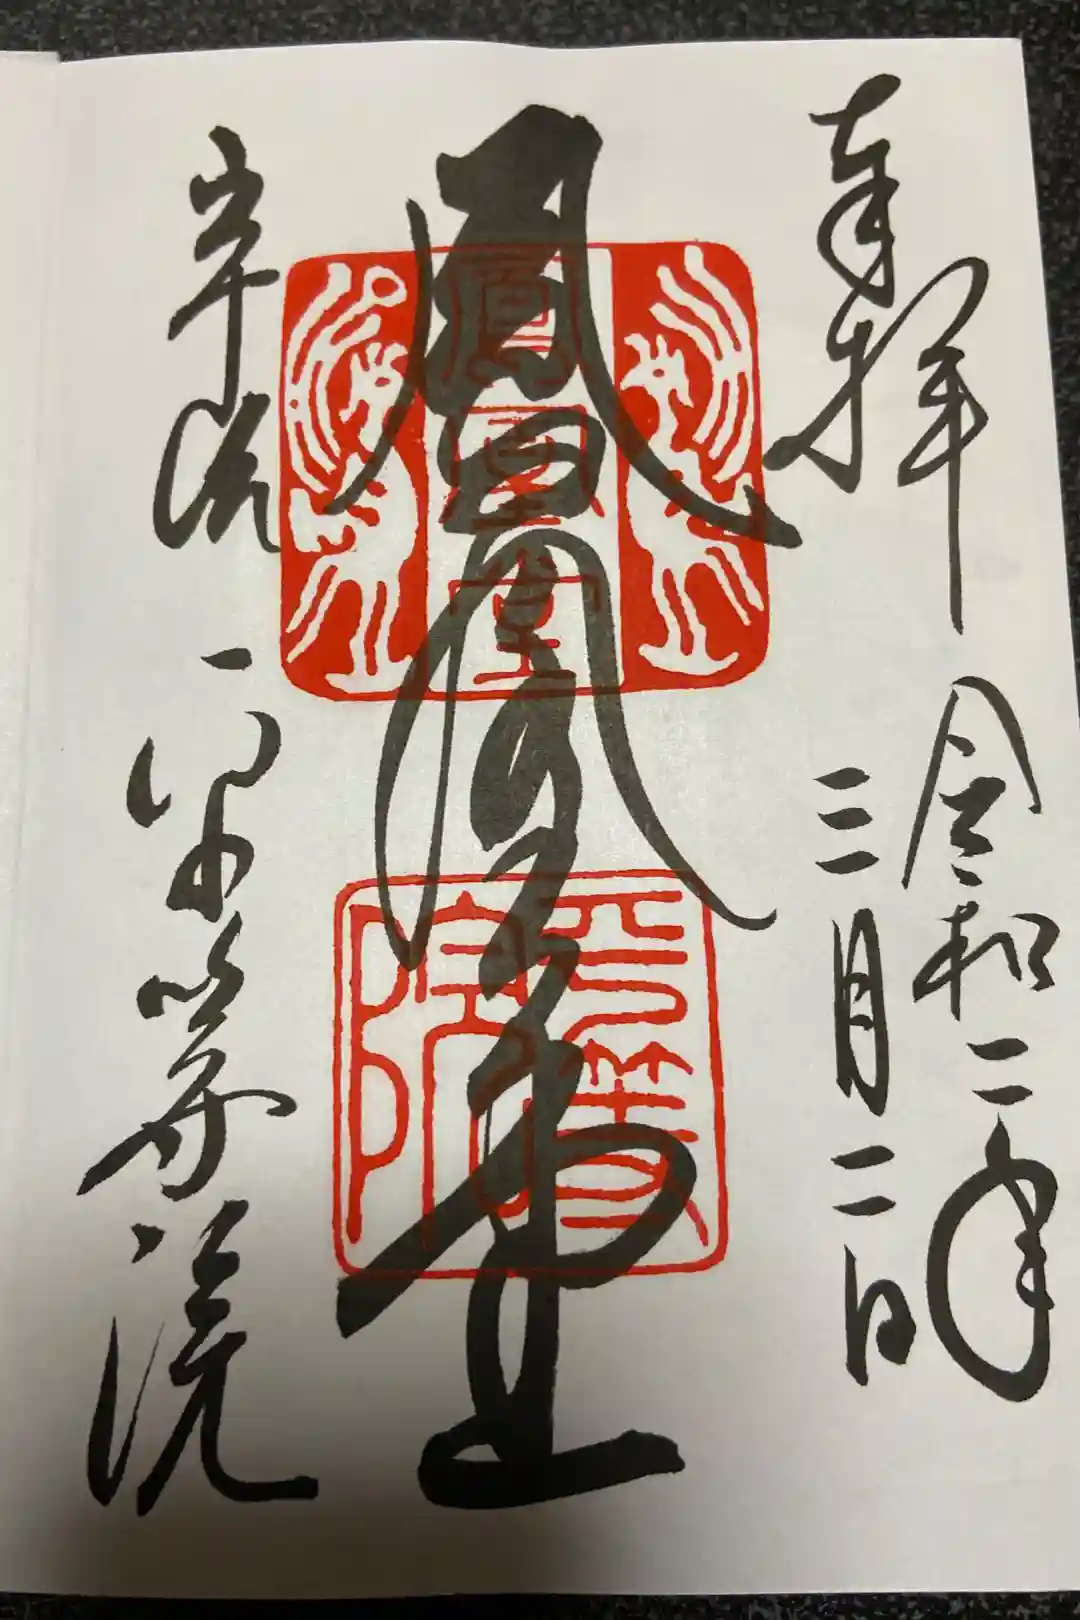 奉拝
令和二年
三月二日
鳳凰堂
鳳凰堂
平等院
宇治
平等院